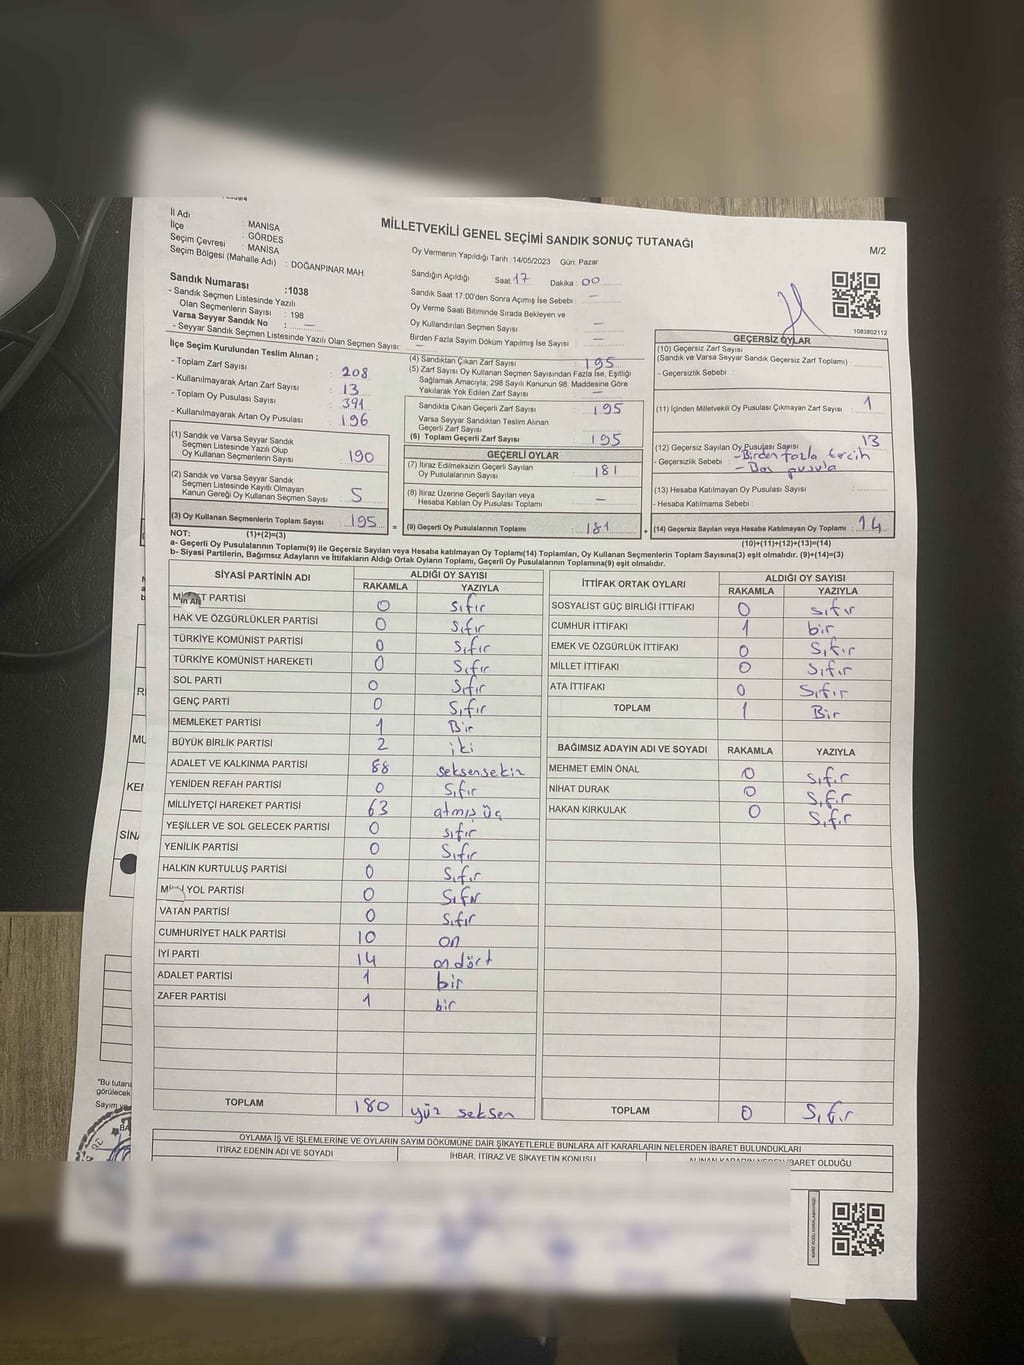 İl Adı : MANİSA
İlçe : GÖRDES
Seçim Çevresi : MANİSA
Seçim Bölgesi (Mahalle Adı) : DOĞANPINAR MAH.
MİLLETVEKİLİ GENEL SEÇİMİ SANDIK SONUÇ TUTANAĞI
M/2
Oy Vermenin Yapıldığı Tarih : 14/05/2023 Gün: Pazar
Sandığın Açıldığı Saat : 17 Dakika : 00
Sandık Saat 17.00'den Sonra Açılmış İse Sebebi : —
Oy Verme Saati Bitiminde Sırada Bekleyen ve
Oy Kullandırılan Seçmen Sayısı : —
Birden Fazla Sayım Döküm Yapılmış İse Sayısı : —
1083802112
Sandık Numarası :1038
- Sandık Seçmen Listesinde Yazılı
Olan Seçmenlerin Sayısı : 198
Varsa Seyyar Sandık No : —
- Seyyar Sandık Seçmen Listesinde Yazılı Olan Seçmen Sayısı: —
İlçe Seçim Kurulundan Teslim Alınan ;
- Toplam Zarf Sayısı : 208
- Kullanılmayarak Artan Zarf Sayısı : 13
- Toplam Oy Pusulası Sayısı : 391
- Kullanılmayarak Artan Oy Pusulası : 196
(1) Sandık ve Varsa Seyyar Sandık
Seçmen Listesinde Yazılı Olup
Oy Kullanan Seçmenlerin Sayısı : 190
(2) Sandık ve Varsa Seyyar Sandık
Seçmen Listesinde Kayıtlı Olmayan
Kanun Gereği Oy Kullanan Seçmen Sayısı : 5
(3) Oy Kullanan Seçmenlerin Toplam Sayısı : 195
(1)+(2)=(3)
(4) Sandıktan Çıkan Zarf Sayısı : 195
(5) Zarf Sayısı Oy Kullanan Seçmen Sayısından Fazla İse, Eşitliği
Sağlamak Amacıyla; 298 Sayılı Kanunun 98. Maddesine Göre
Yakılarak Yok Edilen Zarf Sayısı : —
Sandıkta Çıkan Geçerli Zarf Sayısı : 195
Varsa Seyyar Sandıktan Teslim Alınan
Geçerli Zarf Sayısı :
(6) Toplam Geçerli Zarf Sayısı : 195
GEÇERLİ OYLAR
(7) İtiraz Edilmeksizin Geçerli Sayılan
Oy Pusulalarının Sayısı : 181
(8) İtiraz Üzerine Geçerli Sayılan veya
Hesaba Katılan Oy Pusulası Toplamı : —
= (9) Geçerli Oy Pusulalarının Toplamı : 181
GEÇERSİZ OYLAR
(10) Geçersiz Zarf Sayısı
(Sandık ve Varsa Seyyar Sandık Geçersiz Zarf Toplamı) :
- Geçersizlik Sebebi :
(11) İçinden Milletvekili Oy Pusulası Çıkmayan Zarf Sayısı : 1
(12) Geçersiz Sayılan Oy Pusulası Sayısı : 13
- Geçersizlik Sebebi : -Birden fazla tercih
- Boş pusula
(13) Hesaba Katılmayan Oy Pusulası Sayısı :
- Hesaba Katılmama Sebebi :
+ (14) Geçersiz Sayılan veya Hesaba Katılmayan Oy Toplamı : 14
(10)+(11)+(12)+(13)=(14)
NOT:
a- Geçerli Oy Pusulalarının Toplamı(9) ile Geçersiz Sayılan veya Hesaba katılmayan Oy Toplamı(14) Toplamları, Oy Kullanan Seçmenlerin Toplam Sayısına(3) eşit olmalıdır. (9)+(14)=(3)
b- Siyasi Partilerin, Bağımsız Adayların ve İttifakların Aldığı Ortak Oyların Toplamı, Geçerli Oy Pusulalarının Toplamına(9) eşit olmalıdır.
SİYASİ PARTİNİN ADI ALDIĞI OY SAYISI
RAKAMLA YAZIYLA
PARTİSİ 0 sıfır
HAK VE ÖZGÜRLÜKLER PARTİSİ 0 sıfır
TÜRKİYE KOMÜNİST PARTİSİ 0 sıfır
TÜRKİYE KOMÜNİST HAREKETİ 0 sıfır
SOL PARTİ 0 sıfır
GENÇ PARTİ 0 sıfır
MEMLEKET PARTİSİ 1 Bir
BÜYÜK BİRLİK PARTİSİ 2 iki
ADALET VE KALKINMA PARTİSİ 88 seksensekiz
YENİDEN REFAH PARTİSİ 0 sıfır
MİLLİYETÇİ HAREKET PARTİSİ 63 atmış üç
YEŞİLLER VE SOL GELECEK PARTİSİ 0 sıfır
YENİLİK PARTİSİ 0 sıfır
HALKIN KURTULUŞ PARTİSİ 0 sıfır
YOL PARTİSİ 0 sıfır
VATAN PARTİSİ 0 sıfır
CUMHURİYET HALK PARTİSİ 10 on
İYİ PARTİ 14 on dört
ADALET PARTİSİ 1 bir
ZAFER PARTİSİ 1 bir
TOPLAM 180 yüz seksen
İTTİFAK ORTAK OYLARI ALDIĞI OY SAYISI
RAKAMLA YAZIYLA
SOSYALİST GÜÇ BİRLİĞİ İTTİFAKI 0 sıfır
CUMHUR İTTİFAKI 1 bir
EMEK VE ÖZGÜRLÜK İTTİFAKI 0 sıfır
MİLLET İTTİFAKI 0 sıfır
ATA İTTİFAKI 0 sıfır
TOPLAM 1 Bir
BAĞIMSIZ ADAYIN ADI VE SOYADI RAKAMLA YAZIYLA
MEHMET EMİN ÖNAL 0 sıfır
NİHAT DURAK 0 sıfır
HAKAN KIRKULAK 0 sıfır
TOPLAM 0 sıfır
OYLAMA İŞ VE İŞLEMLERİNE VE OYLARIN SAYIM DÖKÜMÜNE DAİR ŞİKAYETLERLE BUNLARA AİT KARARLARIN NELERDEN İBARET BULUNDUKLARI
İTİRAZ EDENİN ADI VE SOYADI İHBAR, İTİRAZ VE ŞİKAYETİN KONUSU ALINAN KARARIN NEDEN İBARET OLDUĞU
"Bu tutana
görülecek
Sayım ve